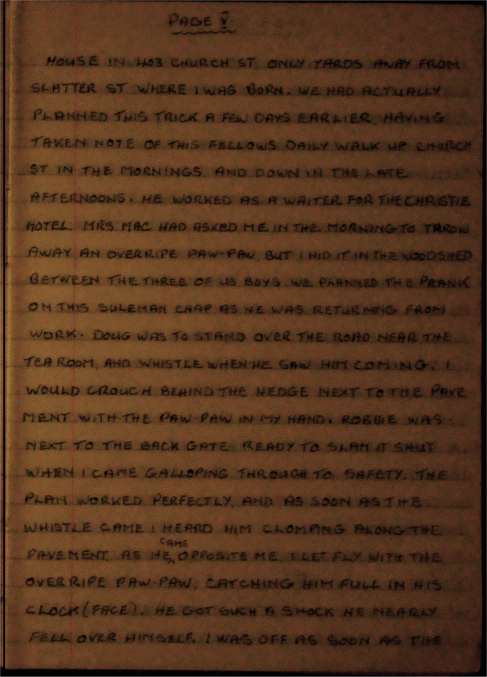 PAGE V
HOUSE IN 403 CHURCH ST. ONLY YARDS AWAY FROM
SLATTER ST WHERE I WAS BORN. WE HAD ACTUALLY
PLANNED THIS TRICK A FEW DAYS EARLIER, HAVING
TAKEN NOTE OF THIS FELLOWS DAILY WALK UP CHURCH
ST IN THE MORNINGS, AND DOWN IN THE LATE
AFTERNOONS. HE WORKED AS A WAITER FOR THE CHRISTIE
HOTEL. MRS. MAC HAD ASKED ME IN THE MORNING TO THROW
AWAY AN OVERRIPE PAW-PAW, BUT I HID IT IN THE WOODSHED
BETWEEN THE THREE OF US BOYS. WE PLANNED THE PRANK
ON THIS SULEMAN CHAP AS HE WAS RETURNING FROM
WORK. DOUG WAS TO STAND OVER THE ROAD NEAR THE
TEA ROOM, AND WHISTLE WHEN HE SAW HIM COMING. I
WOULD CROUCH BEHIND THE HEDGE NEXT TO THE PAVE
MENT WITH THE PAW-PAW IN MY HAND, ROBBIE WAS
NEXT TO THE BACK GATE READY TO SLAM IT SHUT
WHEN I CAME GALLOPING THROUGH TO SAFETY. THE
PLAN WORKED PERFECTLY, AND AS SOON AS THE
WHISTLE CAME I HEARD HIM CLOMPING ALONG THE
PAVEMENT. AS HE CAME OPPOSITE ME, I LET FLY WITH THE
OVERRIPE PAW-PAW, CATCHING HIM FULL IN HIS
CLOCK (FACE). HE GOT SUCH A SHOCK HE NEARLY
FELL OVER HIMSELF. I WAS OFF AS SOON AS THE